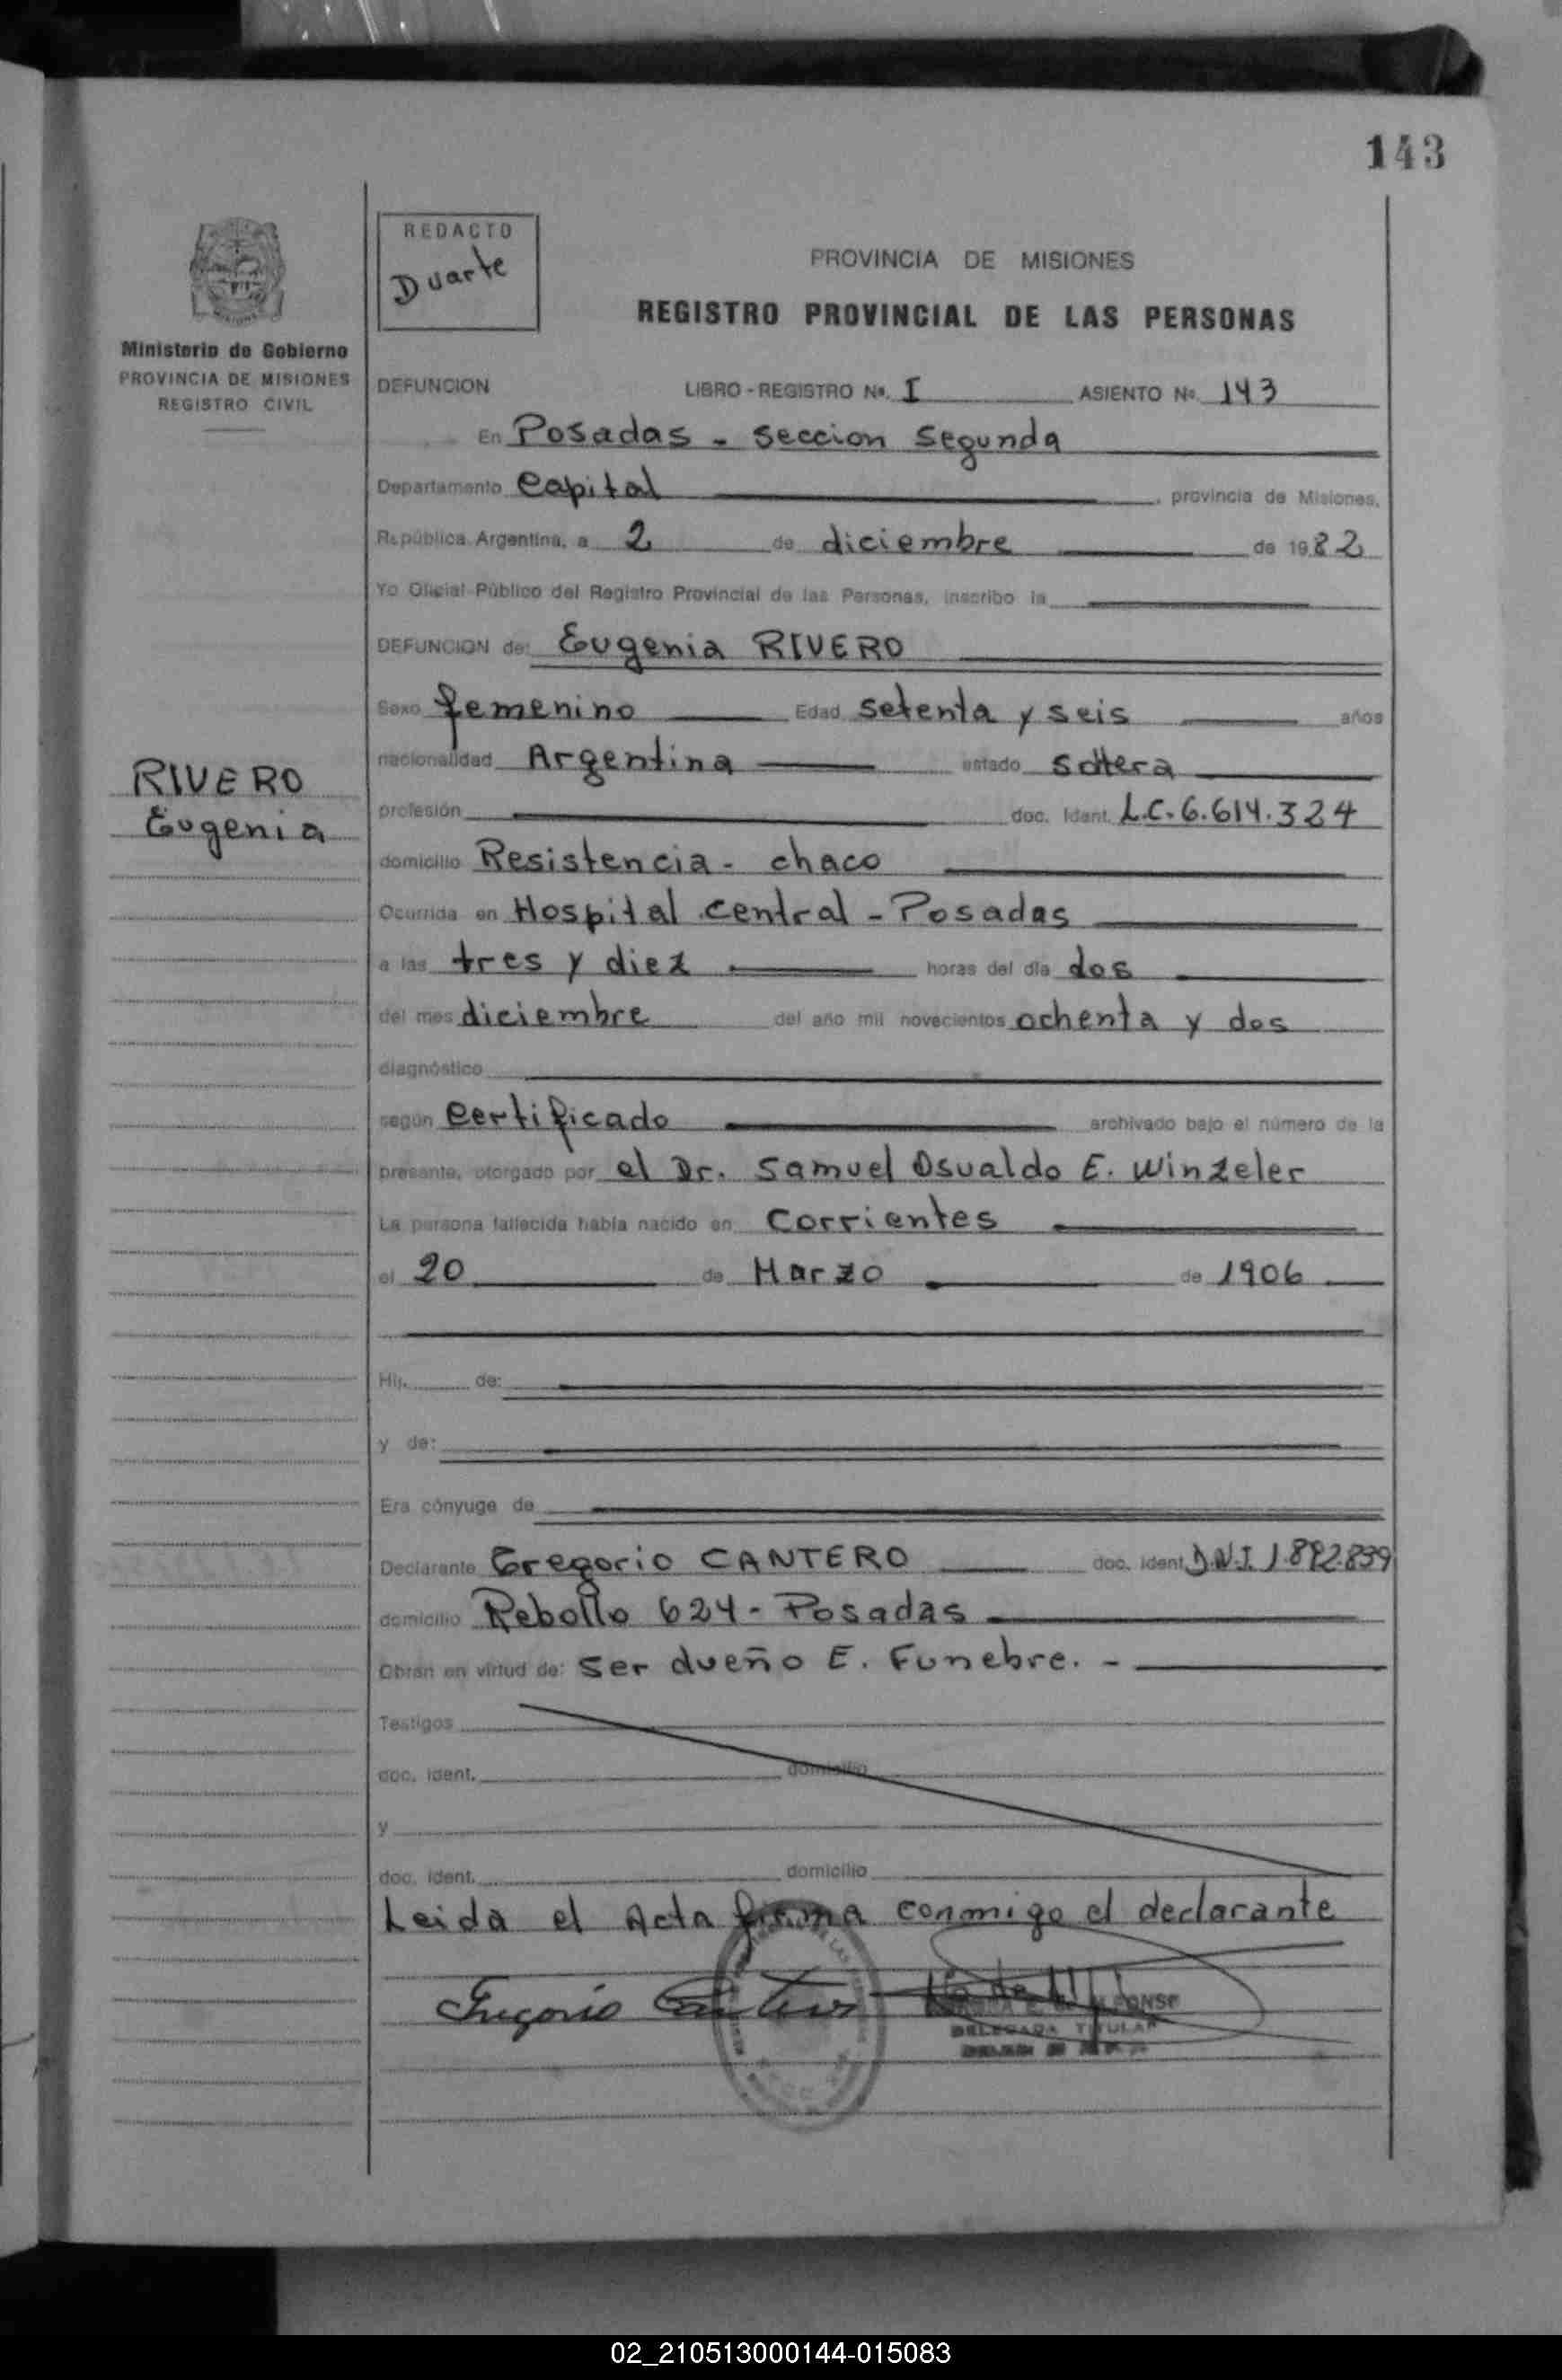 143
REDACTO
Duarte
PROVINCIA DE MISIONES
REGISTRO PROVINCIAL DE LAS PERSONAS
Ministerio de Gobierno
PROVINCIA DE MISIONES
REGISTRO CIVIL
DEFUNCION LIBRO - REGISTRO Nº. I ASIENTO Nº. 143
En Posadas - seccion segunda
Departamento Capital, provincia de Misiones,
República Argentina, a 2 de diciembre de 1982
Yo Oficial Público del Registro Provincial de las Personas, inscribo la
DEFUNCION de: Eugenia RIVERO
Sexo femenino Edad setenta y seis años
nacionalidad Argentina estado soltera
RIVERO
Eugenia
profesión doc. Ident. L.C. 6.614.324
domicilio Resistencia - chaco
Ocurrida en Hospital central - Posadas
a las tres y diez horas del día dos
del mes diciembre del año mil novecientos ochenta y dos
diagnóstico
según Certificado archivado bajo el número de la
presente, otorgado por el Dr. Samuel Osvaldo E. Winzeler
La persona fallecida había nacido en Corrientes
el 20 de Marzo de 1906
Hij. de:
y de:
Era cónyuge de
Declarante Gregorio CANTERO doc. ident. D.N.I. 1.892.839
domicilio Rebollo 624 - Posadas
Obran en virtud de: Ser dueño E. Funebre. -
Testigos
doc. ident. domicilio
y
doc. ident. domicilio
Leida el Acta firma conmigo el declarante
Gregorio Cantero
DELEGADA TITULAR
02_210513000144-015083